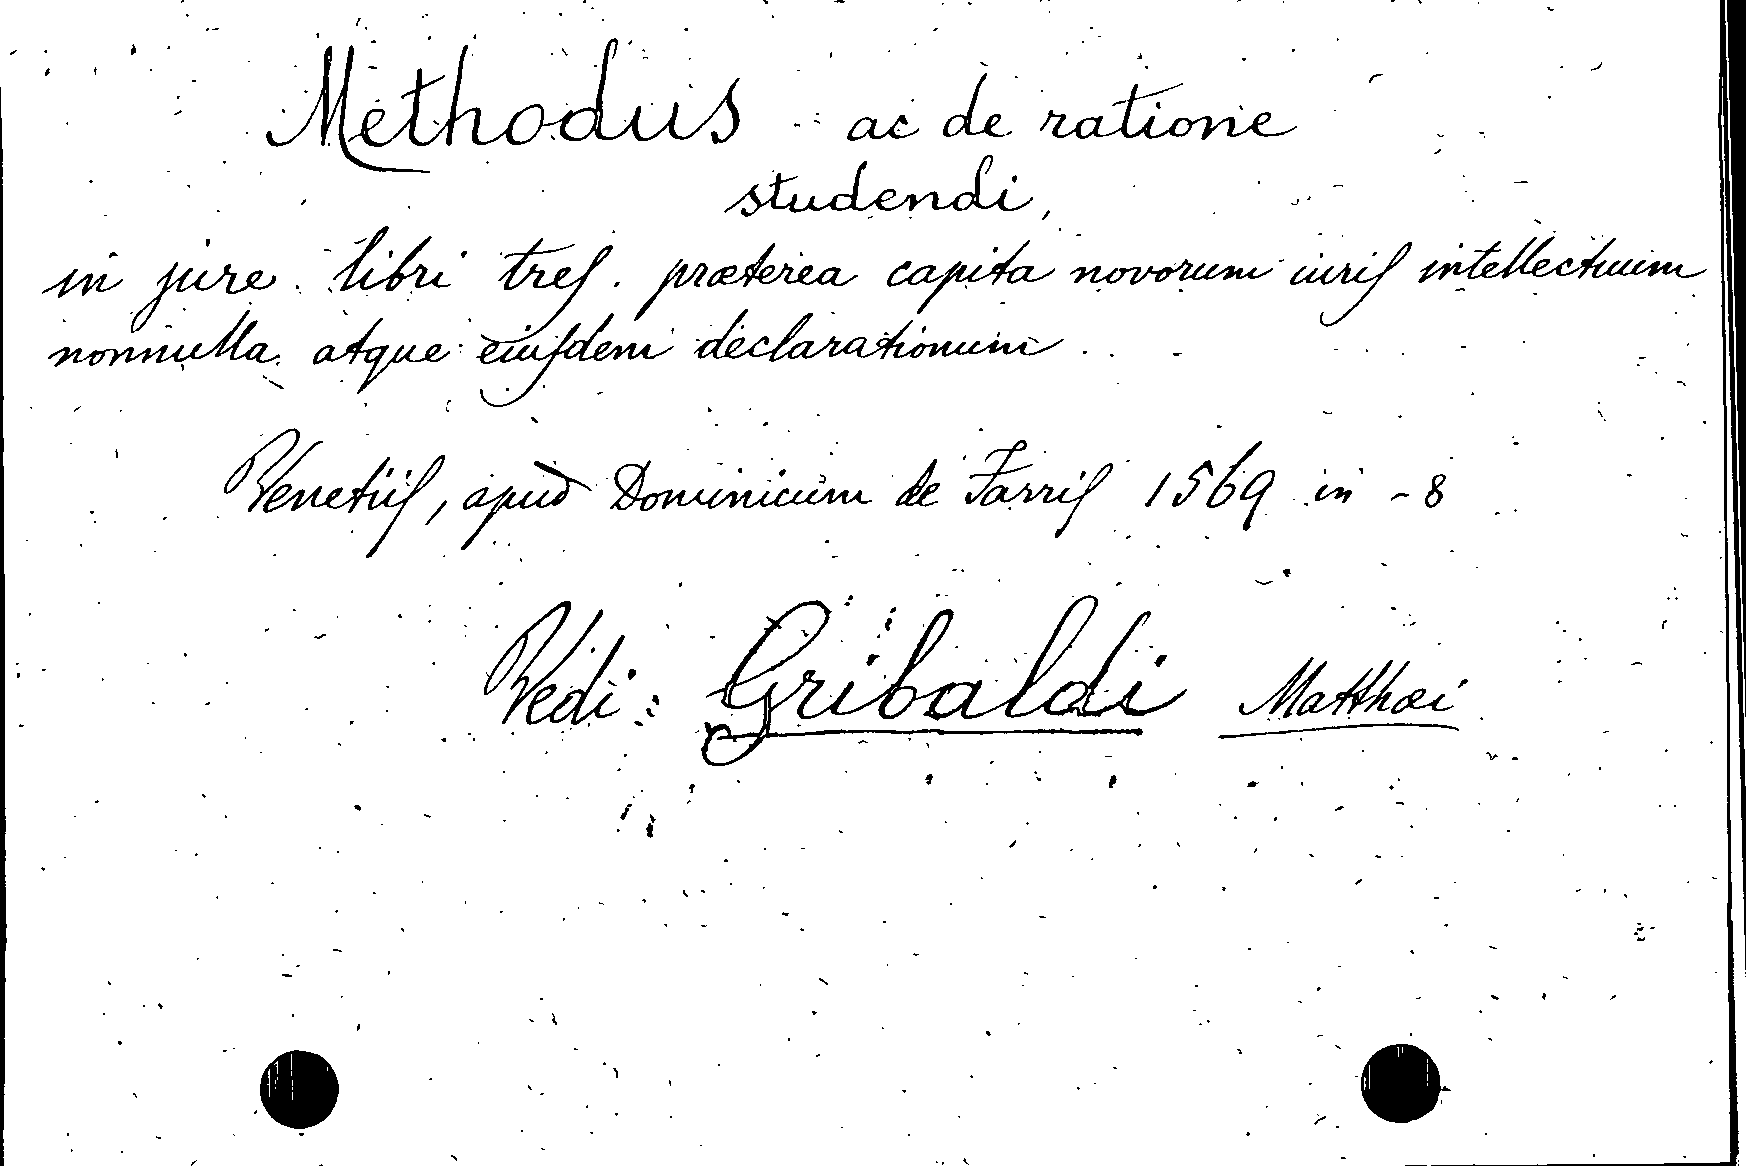 Methodus ac de ratione
studendi,
in jure. libri tres. præterea capita novorum iuris intellectuum
nonnulla atque eiusdem declarationum
Venetiis, apud Dominicum de Farris 1569 in - 8
Vedi: Gribaldi Matthæi